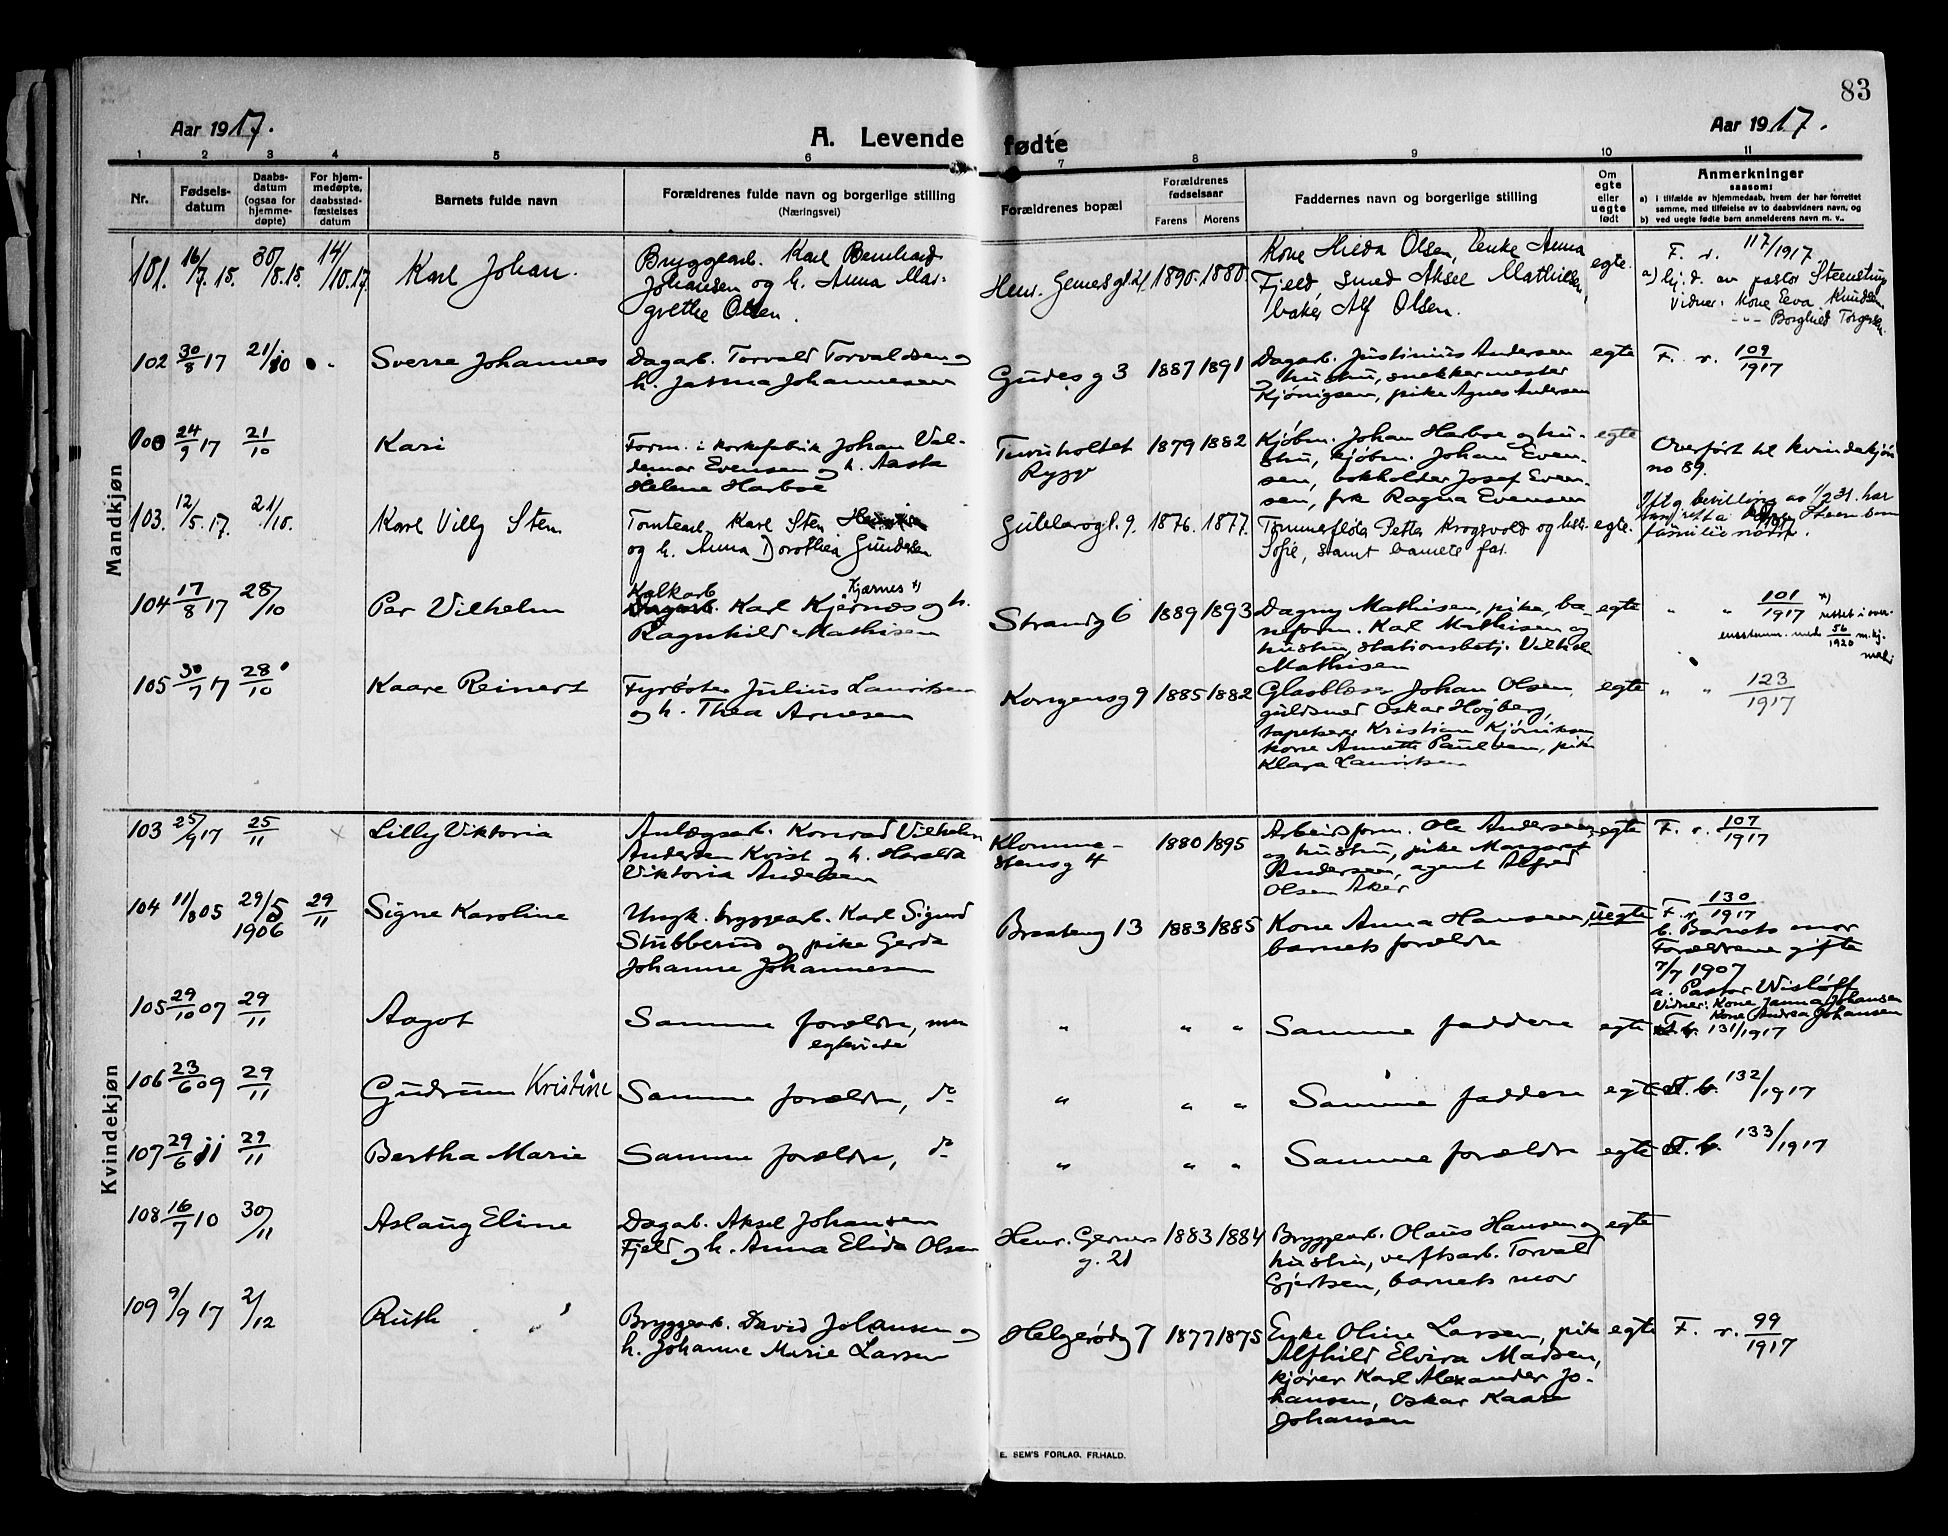 83
Aar 1917.
A. Levende fødte
Aar 1917.
1 2 3 4 5 6 7 8 9 10 11
Nr.
Fødsels-
datum
Daabs-
datum
(ogsaa for
hjemme-
døpte)
For hjem-
medøpte,
daabsstad-
fæstelses
datum
Barnets fulde navn
Forældrenes fulde navn og borgerlige stilling
(Næringsvei)
Forældrenes bopæl
Forældrenes
fødselsaar
Farens Morens
Faddernes navn og borgerlige stilling
Om
egte
eller
uegte
født
Anmerkninger
saasom:
a) i tilfælde av hjemmedaab, hvem der har forrettet
samme, med tilføielse av to daabsvidners navn, og
b) ved uegte fødte barn anmelderens navn m. v..
Mandkjøn
101. 16/7.15. 30/8.15. 14/10.17. Karl Johan.
Bryggearb. Karl Bernhard
Johansen og h. Anna Mar-
grethe Olsen.
Henr. Gernes gt. 21 1890. 1888.
Kone Hilda Olsen, Enke Anna
Fjeld, Smed Aksel Mathisen,
baker Alf Olsen.
egte.
F. r. 117/1917
a) hj.d. av pastor Steenstrup
Vidner: Kone Eeva Knudsen
Borghild Torgersen
102 30/8 17 21/10 Sverre Johannes
Dagarb. Torvald Torvaldsen og
h. Jatma Johannesen
Gudes g 3 1887 1891
Dagarb. Justinius Andersen
hustru, snekkermester
Kjönigsen, pike Agnes Andersen
egte F. r. 109/1917
24/9 17 21/10 Kari
Form. i korkfabrik Johan Val-
demar Evensen og h. Aasta
Helene Harboe
Rygge 1879 1882
Kjøbm. Johan Harboe og hu-
stru, kjøbm. Johan Even-
sen, bokholder Josef Even-
sen, frk Ragna Evensen
egte
Overført til kvindekjøn
no 89.
103. 12/5.17. 21/10. Karl Villy Sten
Tomtearb. Karl Sten
og h. Anna Dorothea Gundersen
Gulbrogt. 9. 1876. 1877.
Tømmerfløter Petter Krogsvold og hustr.
Sofie, samt barnets far.
egte.
Iflg bevilling av 1/2 31. har
rett til Steen som
familienavn.
104 17/8 17 28/10 Per Vilhelm
Kalkarb Kjærnes x)
Karl Kjernæs og h.
Ragnhild Mathisen
Strandg 6 1889 1893
Dagny Mathisen, pike, ba-
neform. Karl Mathisen og
hustru, stationsbetj. Vilhelm
Mathisen
egte " " 101/1917 x)
rettet i over-
ensstem. med 56/1920 m.kj.
105 30/7 17 28/10 Kaare Reinert
Fyrbøter Julius Lauritsen
og h. Thea Arnesen
Kongensg 9 1885 1882
Glasblæser Johan Olsen,
guldsmed Oskar Högberg,
tapetserer Kristian Kjöniksen
kone Annette Paulsen, pike
Klara Lauritsen
egte " " 123/1917
Kvindekjøn
103 25/9 17 25/11 Lilly Viktoria
Anlægsarb. Konrad Vilhelm
Andersen Kvist og h. Haralda
Viktoria Andersen
Klomme-
stensg 4 1880 1895
Arbeidsform. Ole Andersen
og hustru, pike Margaret
Andersen, agent Alfred
Olsen Aker
egte F. r. 107/1917
104 11/8 05 29/5 1906 29/11 Signe Karoline
Ungk. bryggearb. Karl Sigurd
Stubberud og pike Gerda
Johanne Johannesen
Braateng 13 1883 1885
Kone Anna Hansen,
barnets forældre
uegte
F. r. 130/1917
b. Barnets mor
Forældrene gifte
7/7 1907
a. Pastor Wisløff
Vidner: Kone Janna Johansen
Kone Andrea Johansen
105 29/10 07 29/11 Aagot
Samme forældre, nu
egteviede
" " "
Samme faddere egte F. r. 131/1917
106 23/6 09 29/11 Gudrun Kristine
Samme forældre, do
" " "
Samme faddere egte F. r. 132/1917
107 29/6 11 29/11 Bertha Marie
Samme forældre, do
" " "
Samme forældre egte F. r. 133/1917
108 16/7 10 30/11 Aslaug Eline
Dagarb. Aksel Johansen
Fjeld og h. Anna Elida Olsen
Henr. Gerners
g. 21 1883 1884
Bryggearb. Olaus Hansen og
hustru, verftsarb. Torvald
Gjertsen, barnets mor
egte
109 9/9 17 2/12 Ruth
Bryggearb. David Johansen og
h. Johanne Marie Larsen
Helgerødg 7 1877 1875
Enke Oline Larsen, pike
Alfhild Elvira Madsen,
kjører Karl Alexander Jo-
hansen, Oskar Kaare
Johansen
egte F. r. 99/1917
E. SEM'S FORLAG. FR.HALD.